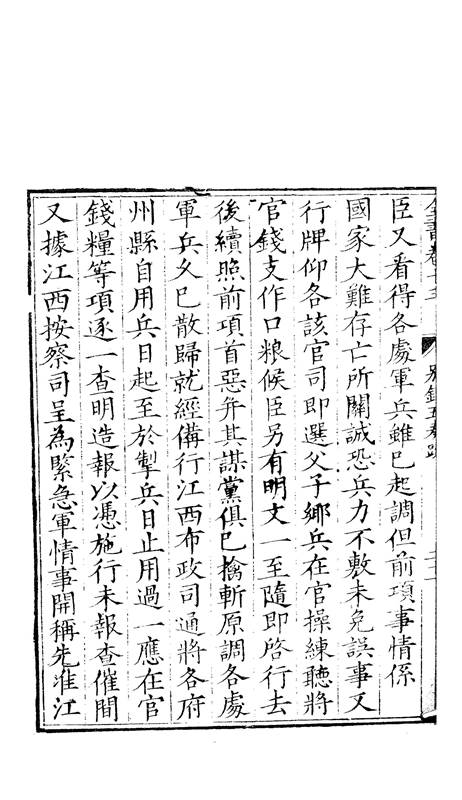 全書卷十三 別錄五奏疏
臣又看得各處軍兵雖已起調但前項事情係
國家大難存亡所關誠恐兵力不敷未免誤事又
行牌仰各該官司即選父子鄉兵在官操練聽將
官錢支作口粮候臣另有明文一至隨即啓行去
後續照前項首惡并其謀黨俱已擒斬原調各處
軍兵久已散歸就經備行江西布政司通將各府
州縣自用兵日起至於掣兵日止用過一應在官
錢糧等項逐一查明造報以憑施行未報查催間
又據江西按察司呈為緊急軍情事開稱先准江